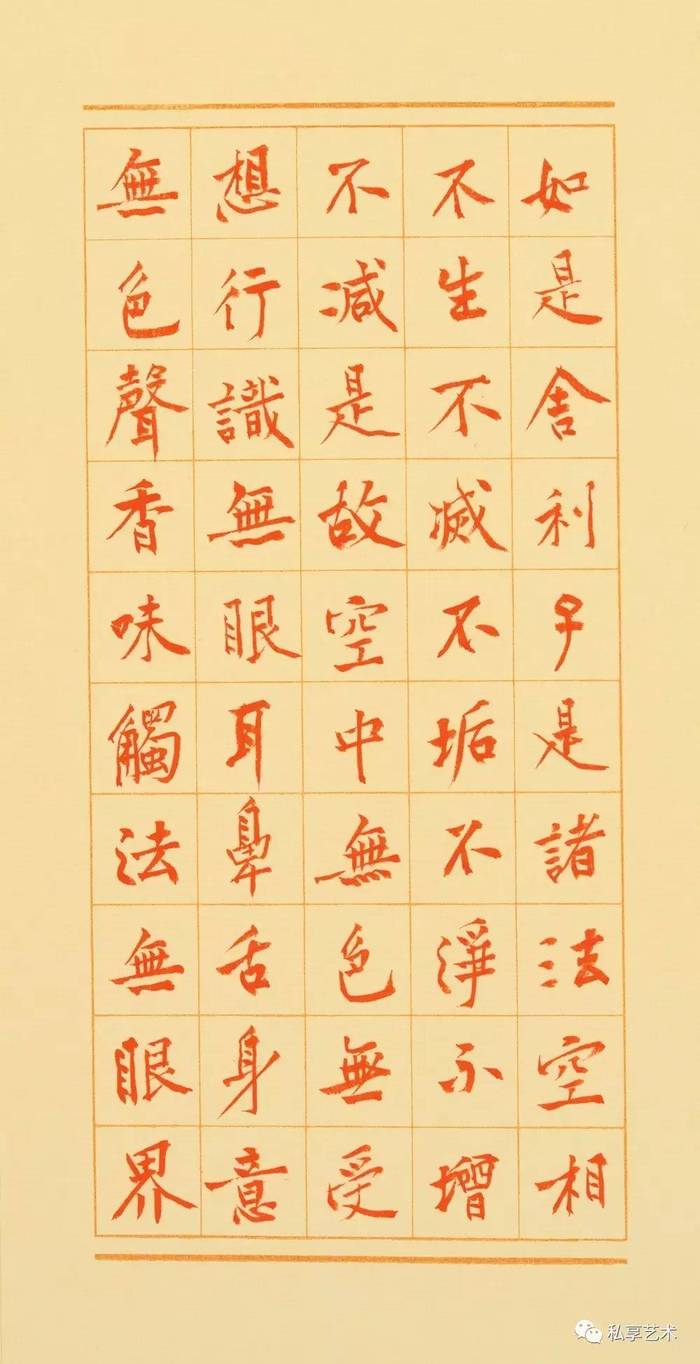 如是舍利子是諸法空相
不生不滅不垢不淨不增
不減是故空中無色無受
想行識無眼耳鼻舌身意
無色聲香味觸法無眼界
私享艺术